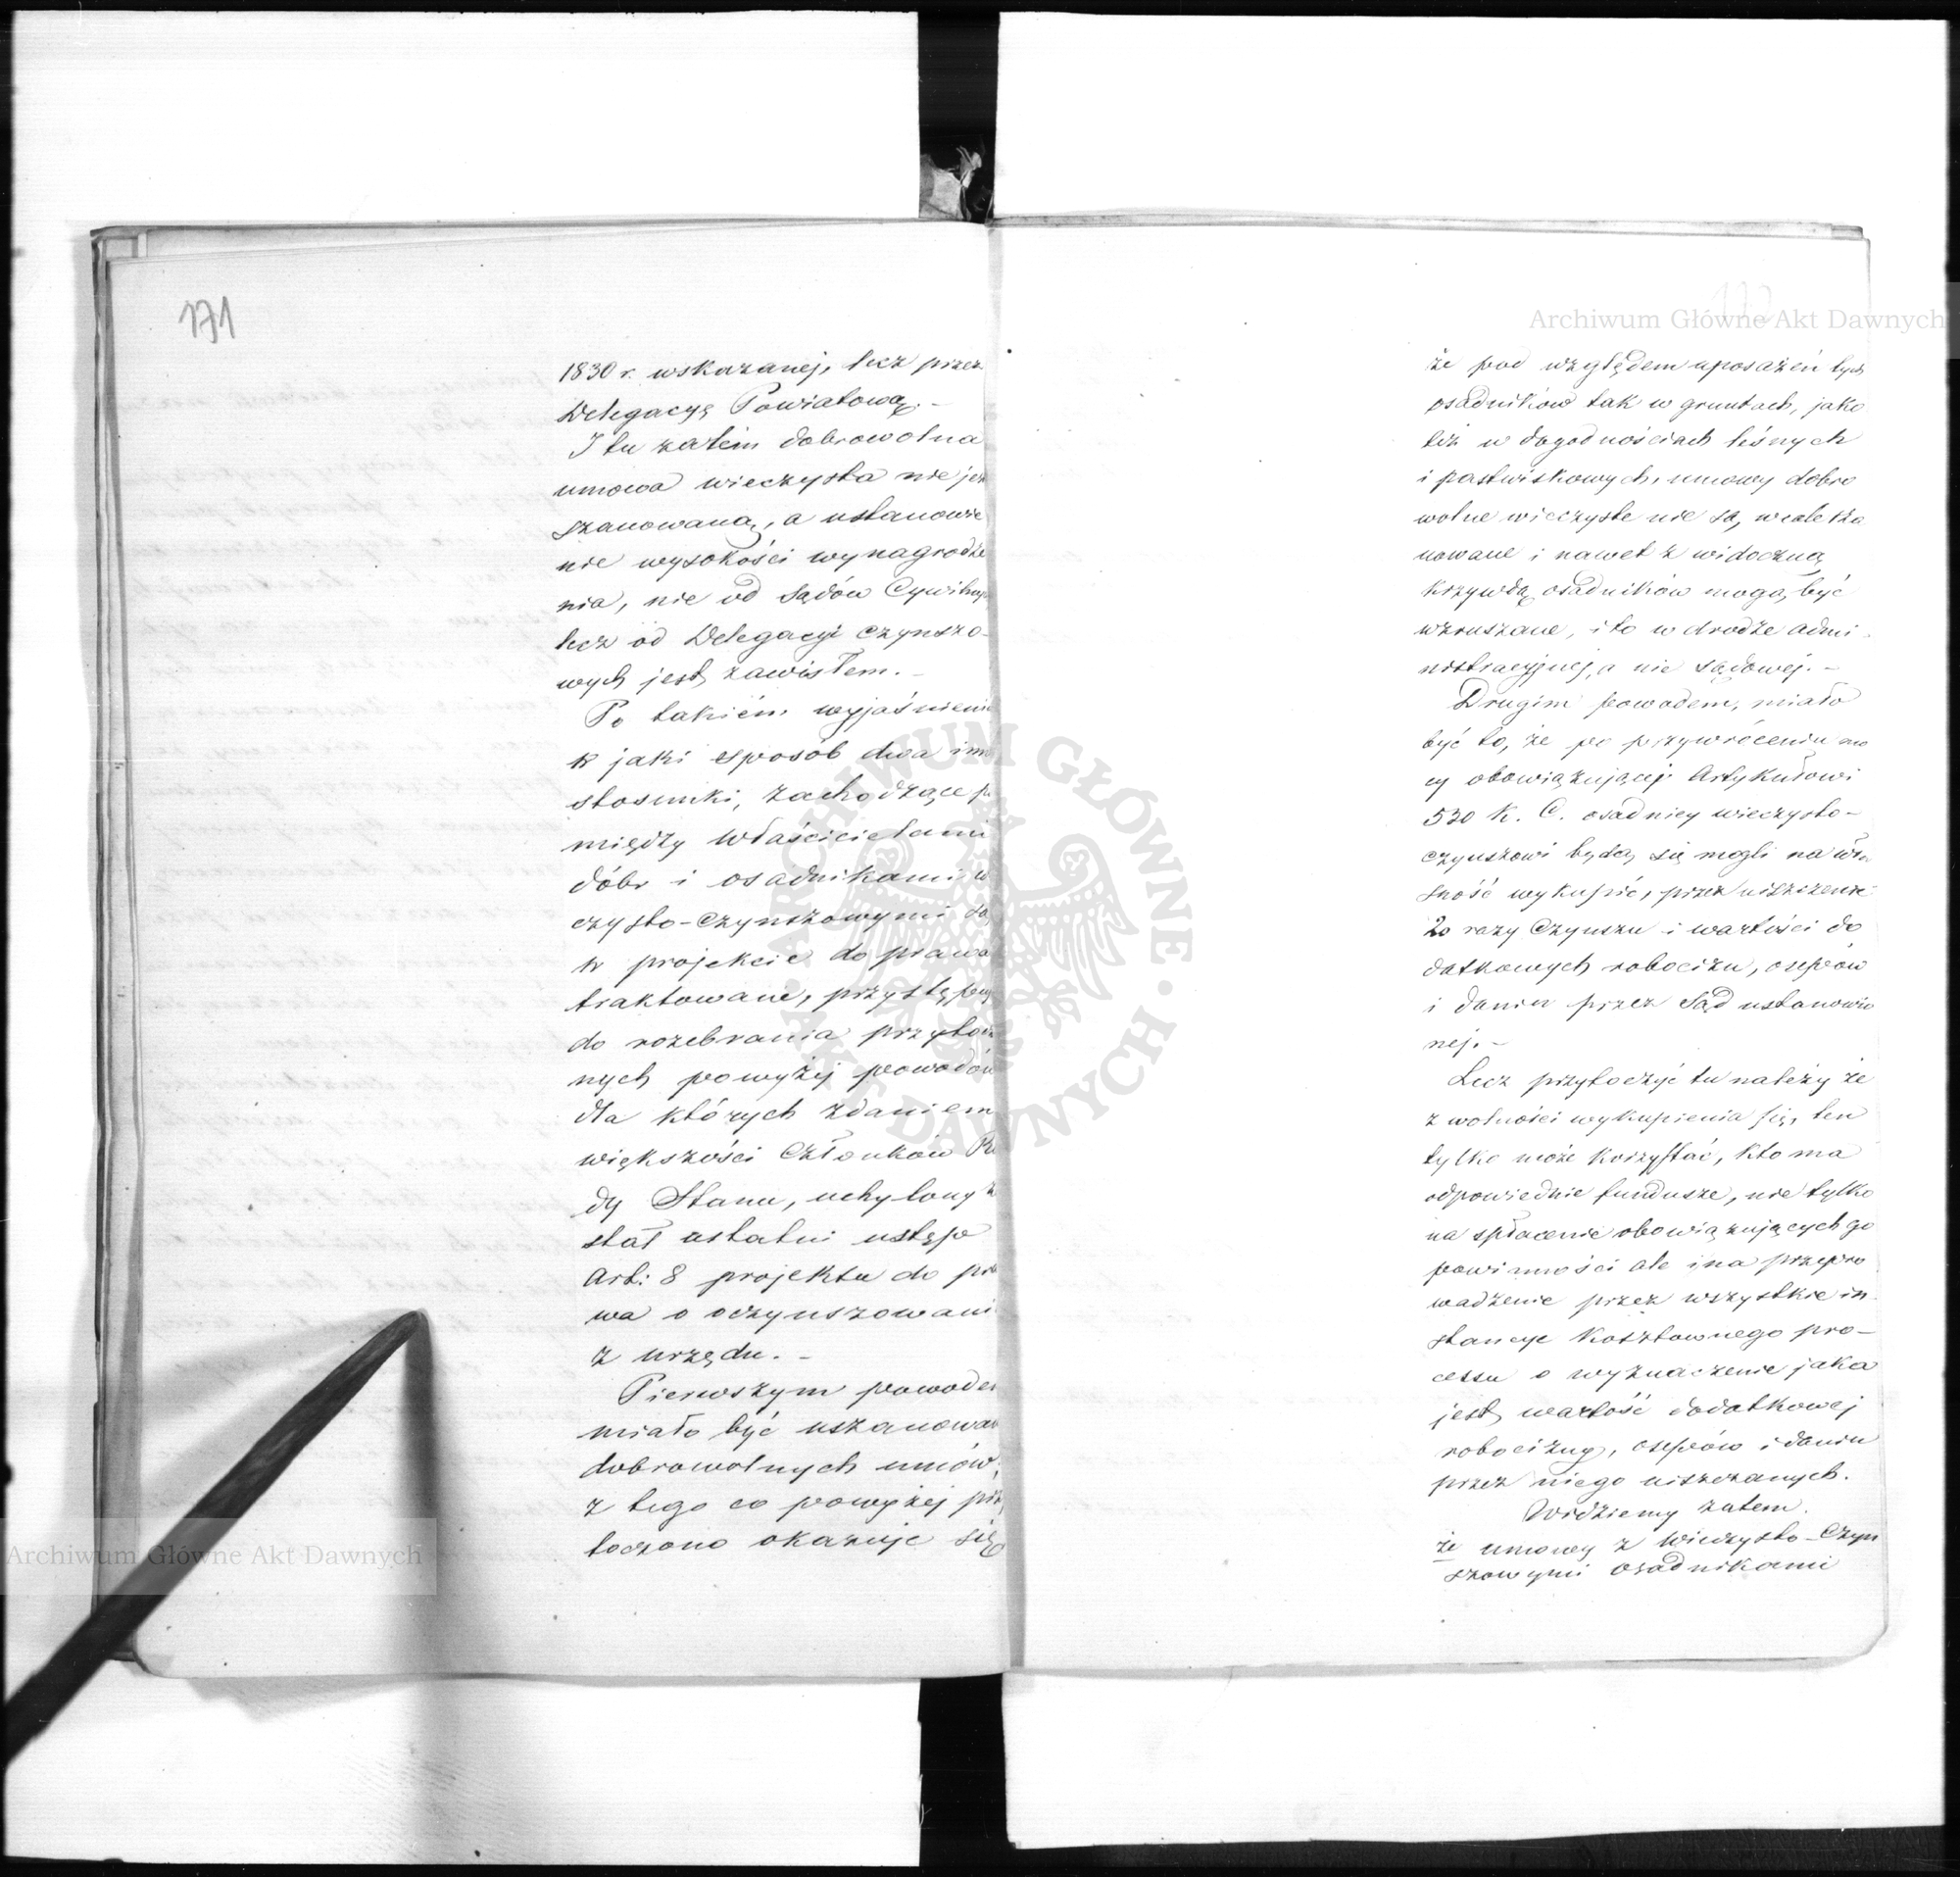 171
1830 r. wskazanej, lecz przez
Delegacyę Powiatową. –
I tu zatém dobrowolna
umowa wieczysta nie jes
szanowaną, a ustanowie
nie wysokości wynagrodze
nia, nie od Sądów Cywilny
lecz od Delegacyi Czynszo-
wych jest zawisłem. –
Po takiém wyjaśnieniu
w jaki sposób dwa inne
stosunki, zachodzące po
między Właścicielami
dóbr i osadnikami w
czysto-Czynszowymi są
w projekcie do prawa
traktowane, przystępuj
do rozebrania przyto
nych powyżéj powodów
dla których zdaniem
większości Członków Ra
dy Stanu, uchylony zo
stał ostatni ustęp
Art: 8 projektu do pra
wa o oczynszowani
z urzędu. –
Pierwszym powodem
miało być uszanowan
dobrowolnych umów;
z tego co powyżéj prz
toczono okazuje się
Archiwum Główne Akt Dawnych
że pod względem uposażeń tych
osadników tak w gruntach, jako
też w dogodnościach leśnych
i pastwiskowych, umowy dobro
wolne wieczyste nie są, wcale sza
nowane i nawet z widoczną
krzywdą osadników mogą być
wzruszane, i to w drodze admi-
nistracyjnej, a nie sądowej. –
Drugim powodem, miało
być to, że po przywróceniu mo
cy obowiązującéj Artykułowi
530 K. C. osadnicy wieczysto-
czynszowi będą się mogli na wła
sność wykupić, przez uiszczenie
20 razy Czynszu i wartości do
datkowych robocizn, osepów
i danin przez Sąd ustanowio
nej. –
Lecz przytoczyć tu należy że
z wolności wykupienia się, ten
tylko może korzystać, kto ma
odpowiednie fundusze, nie tylko
na spłacenie obowiązujących go
powinności ale i na przepro
wadzenie przez wszystkie in-
stancye Kosztownego pro-
cessu o wyznaczenie jaka
jest wartość dodatkowej
robocizny, osepów i danin
przez niego uiszczanych.
Widziemy zatem.
że umowy z wieczysto-Czyn
szowymi osadnikami
Archiwum Główne Akt Dawnych
ARCHIWUM GŁÓWNE AKT DAWNYCH